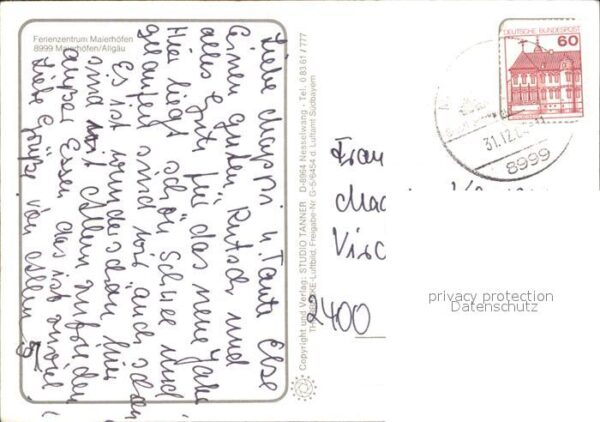 Ferienzentrum Maierhöfen
8999 Maierhöfen/Allgäu
Liebe Mappi u. Tante Else
Einen guten Rutsch und
alles Gute für das neue Jahr
Hier liegt schön Schnee und
gelaufen sind wir auch schon
Es ist wunderschön hier
sind mit Allem zufrieden
außer Essen das ist zuviel
Liebe Grüße von allen
Copyright und Verlag: STUDIO TANNER D-8964 Nesselwang - Tel. 0 83 61 / 777
Luftbild, Freigabe-Nr. G-5/6454 d. Luftamt Südbayern
DEUTSCHE BUNDESPOST
60
31.12.
8999
Frau
2400
privacy protection
Datenschutz